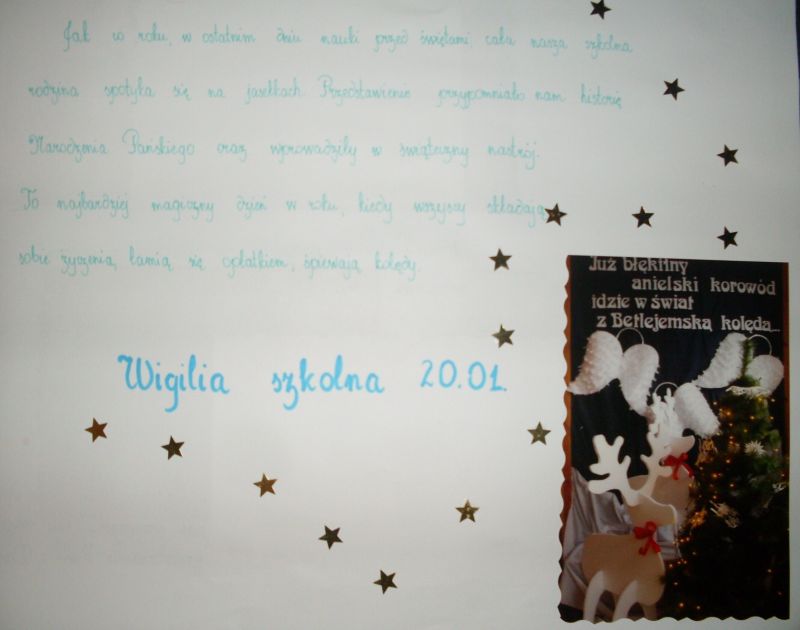 Jak co roku, w ostatnim dniu nauki przed świętami cała nasza szkolna
rodzina spotyka się na jasełkach. Przedstawienie przypomniało nam historię
Narodzenia Pańskiego oraz wprowadziły w świąteczny nastrój.
To najbardziej magiczny dzień w roku, kiedy wszyscy składają
sobie życzenia, łamią się opłatkiem, śpiewają kolędy.
Wigilia szkolna 20.01.
Już błękitny
anielski korowód
idzie w świat
z Betlejemską kolędą...